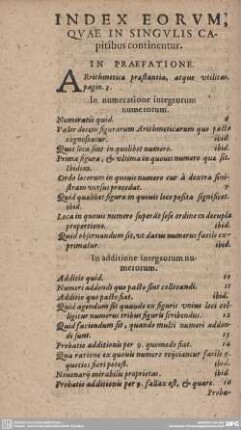 INDEX EORVM,
QVAE IN SINGVLIS CA-
pitibus continentur.
IN PRAEFATIONE.
ARithmetica præstantia, atque vtilitas.
pagin. 3.
In numeratione integrorum
numerorum.
Numeratio quid. 6
Valor decem figurarum Arithmeticarum quo pacto
cognoscatur. ibid.
Quot loca sint in quolibet numero. ibid.
Prima figura, & vltima in quouis numero qua sit.
ibidem.
Ordo locorum in quouis numero cur à dextra sini-
stram versus procedat. 7
Quid quælibet figura in quouis loco posita significet.
ibid.
Loca in quouis numero superāt sese ordine in decupla
proportione. ibid.
Quid obseruandum sit, vt datus numerus facile ex-
primatur. ibid.
In additione integrorum nu-
merorum.
Additio quid. 10
Numeri addendi quo pacto sint collocandi. 11
Additio quo pacto fiat. ibid.
Quid agendum sit quando ex figuris vnius loci col-
ligitur numerus tribus figuris scribendus. 12
Quid faciendum sit, quando multi numeri adden-
di sunt. 13
Probatio additionis per 9. quomodo fiat. 14
Qua ratione ex quouis numero reijciantur facile 9.
quoties fieri potest. ibid.
Nouenarij mirabilis proprietas. ibid.
Probatio additionis per 9. fallax est, & quare. 16
Proba-